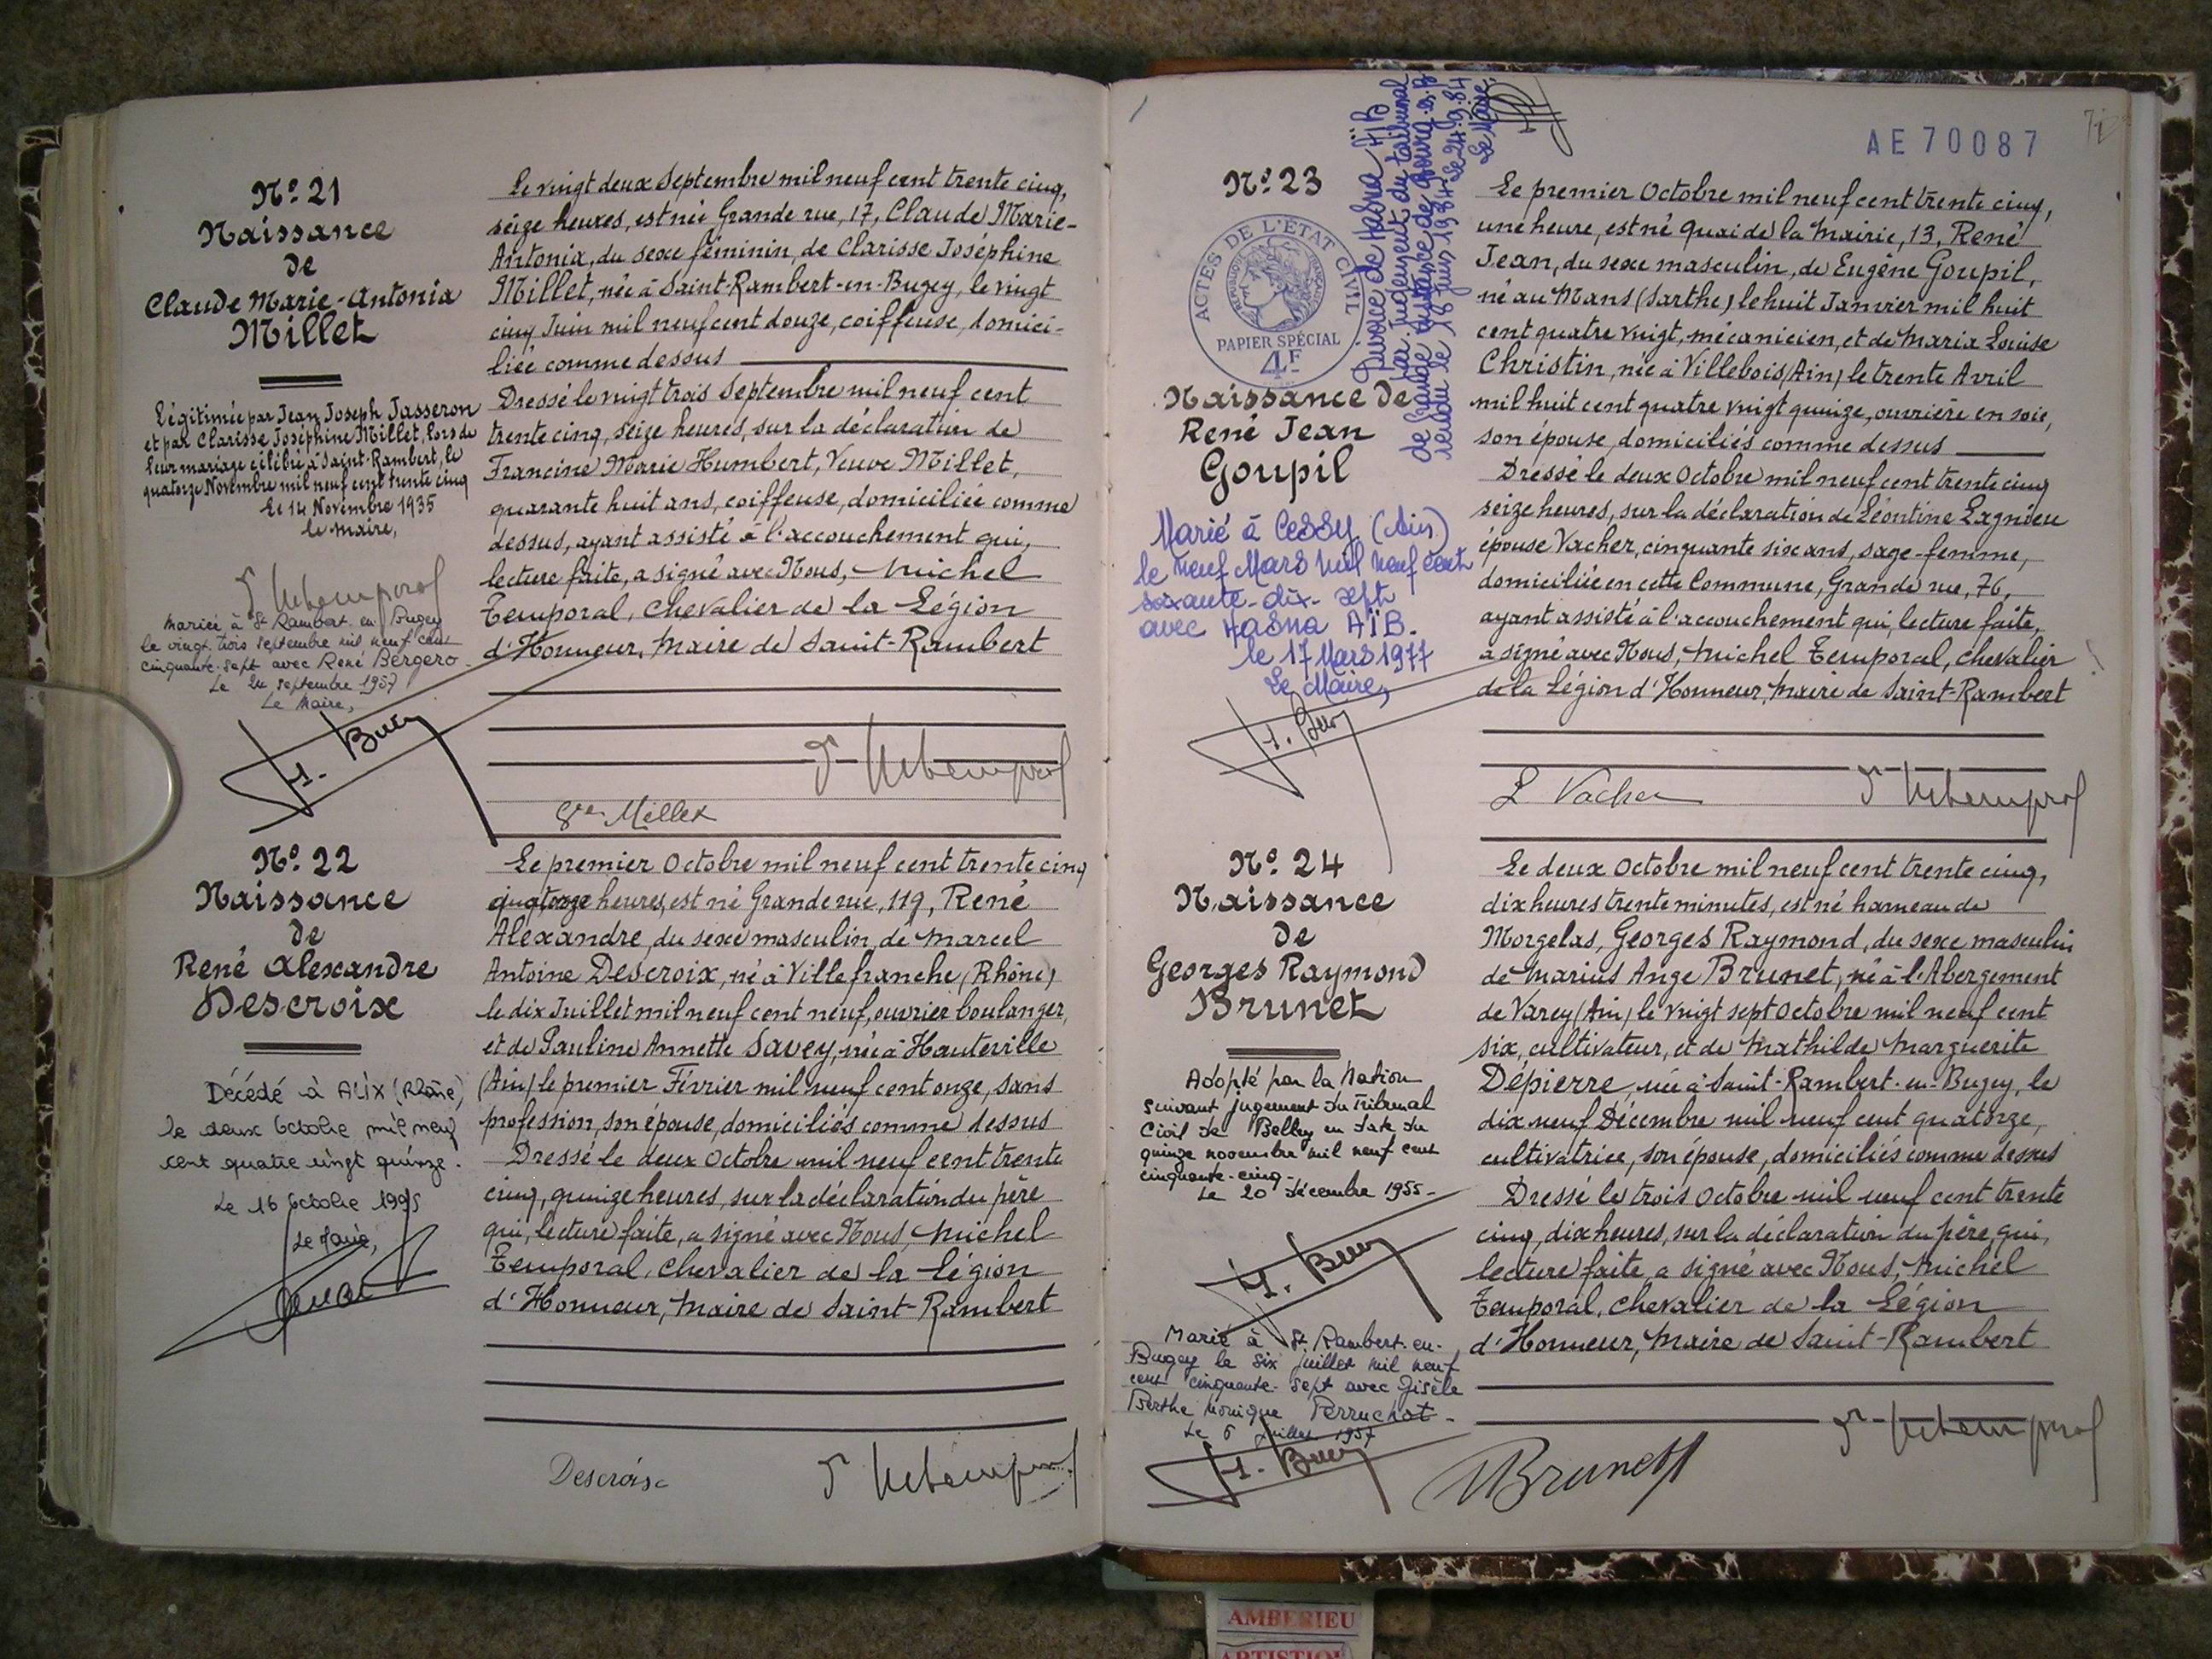 Nº 21
Naissance
de
Claude Marie-Antonia
Millet
Légitimée par Jean Joseph Tasseron
et par Clarisse Joséphine Millet, lors de
leur mariage célébré à Saint-Rambert, le
quatorze Novembre mil neuf cent trente cinq
Le 14 Novembre 1935
le Maire,
Mariée à St Rambert en Bugey
le vingt trois septembre mil neuf cent
cinquante-sept avec René Bergero.
Le 24 septembre 1957
Le Maire,
Le vingt deux Septembre mil neuf cent trente cinq,
seize heures, est née Grande rue, 17, Claude Marie-
Antonia, du sexe féminin, de Clarisse Joséphine
Millet, née à Saint-Rambert-en-Bugey, le vingt
cinq Juin mil neuf cent douze, coiffeuse, domici-
liée comme dessus
Dressé le vingt trois Septembre mil neuf cent
trente cinq, seize heures, sur la déclaration de
Francine Marie Humbert, Veuve Millet,
quarante huit ans, coiffeuse, domiciliée comme
dessus, ayant assisté à l'accouchement qui,
lecture faite, a signé avec Nous, Michel
Temporal, Chevalier de la Légion
d'Honneur, Maire de Saint-Rambert
Vve Millet
Nº 22
Naissance
de
René Alexandre
Descroix
Décédé à ALIX (Rhône)
le deux Octobre mil neuf
cent quatre vingt quinze.
Le 16 Octobre 1995
Le Maire,
Le premier Octobre mil neuf cent trente cinq
quatorze heures, est né Grande rue, 119, René
Alexandre, du sexe masculin, de Marcel
Antoine Descroix, né à Villefranche (Rhône)
le dix Juillet mil neuf cent neuf, ouvrier boulanger,
et de Pauline Annette Savey, née à Hauteville
(Ain) le premier Février mil neuf cent onze, sans
profession, son épouse, domiciliés comme dessus
Dressé le deux Octobre mil neuf cent trente
cinq, quinze heures, sur la déclaration du père
qui, lecture faite, a signé avec Nous, Michel
Temporal, Chevalier de la Légion
d'Honneur, Maire de Saint-Rambert
Descroix
AE 70087
Nº 23
ACTES DE L'ÉTAT CIVIL
RÉPUBLIQUE FRANÇAISE
PAPIER SPÉCIAL
4F
Divorcé de Hasna AÏB
par jugement du tribunal
de Grande Instance de Bourg-en-B
rendu le 18 juin 1984. Le 24.9.84
Le Maire.
Naissance de
René Jean
Goupil
Marié à CESSY (Ain)
le neuf Mars mil neuf cent
soixante-dix-sept
avec HASNA AÏB.
le 17 Mars 1977
Le Maire,
Le premier Octobre mil neuf cent trente cinq,
une heure, est né Quai de la Mairie, 13, René
Jean, du sexe masculin, de Eugène Goupil,
né au Mans (Sarthe) le huit Janvier mil huit
cent quatre vingt, mécanicien, et de Maria Louise
Christin, née à Villebois (Ain) le trente Avril
mil huit cent quatre vingt quinze, ouvrière en soie,
son épouse, domiciliés comme dessus
Dressé le deux Octobre mil neuf cent trente cinq
seize heures, sur la déclaration de Léontine Lagnieu
épouse Vacher, cinquante six ans, sage-femme,
domiciliée en cette Commune, Grande rue, 76,
ayant assisté à l'accouchement qui, lecture faite,
a signé avec Nous, Michel Temporal, Chevalier
de la Légion d'Honneur, Maire de Saint-Rambert
L Vacher
Nº 24
Naissance
de
Georges Raymond
Brunet
Adopté par la Nation
suivant jugement du Tribunal
Civil de Belley en date du
quinze novembre mil neuf cent
cinquante-cinq.
Le 20 décembre 1955.
Marié à St Rambert-en-
Bugey le six juillet mil neuf
cent cinquante-sept avec Gisèle
Berthe Monique Perruchot.
Le 6 juillet 1957
Le deux Octobre mil neuf cent trente cinq,
dix heures trente minutes, est né hameau de
Morgelas, Georges Raymond, du sexe masculin
de Marius Ange Brunet, né à l'Abergement
de Varey (Ain) le vingt sept Octobre mil neuf cent
six, cultivateur, et de Mathilde Marguerite
Dépierre, née à Saint-Rambert-en-Bugey, le
dix neuf Décembre mil neuf cent quatorze,
cultivatrice, son épouse, domiciliés comme dessus
Dressé le trois Octobre mil neuf cent trente
cinq, dix heures, sur la déclaration du père, qui,
lecture faite, a signé avec Nous, Michel
Temporal, Chevalier de la Légion
d'Honneur, Maire de Saint-Rambert
Brunet
AMBERIEU